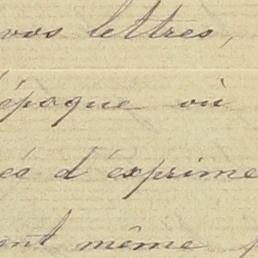 vos lettres,
époque où
és d'exprime
ent même